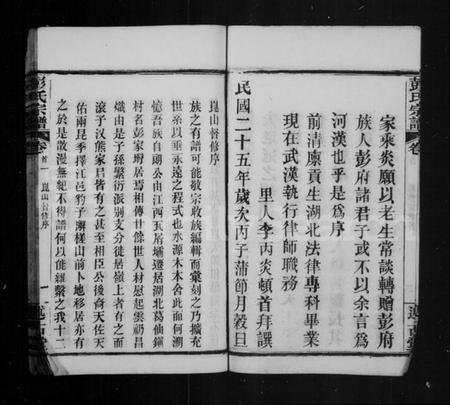 彭氏宗譜
卷
家乘炎願以老生常談轉贈彭府
族人彭府諸君子或不以余言為
河漢也乎是為序
前清廩貢生湖北法律專科畢業
現在武漢執行律師職務
里人李丙炎頓首拜譔
民國二十五年歲次丙子蒲節月穀旦
崑山督修序
族之有譜可能敬宗收族編輯而彙刻之乃擴充
世系以垂永遠之程式也水源木本舍此而何溯
憶吾族自朗公由江西瓦屑壩遷居湖北葛仙鎮
村名彭家塆居焉相傳廿餘世人材慰起雲礽昌
熾由是子孫繁衍派別支分徙居嶺上者有之而
滾子汊熊家皆有之甚至相臣公後裔天佐天
佑兩昆季擇江邑豹子澥槎山前卜地移居亦有
之於是散漫無紀不得譜何以能維繫之我十二
彭氏宗譜
卷首
崑山督修序
一
述古堂